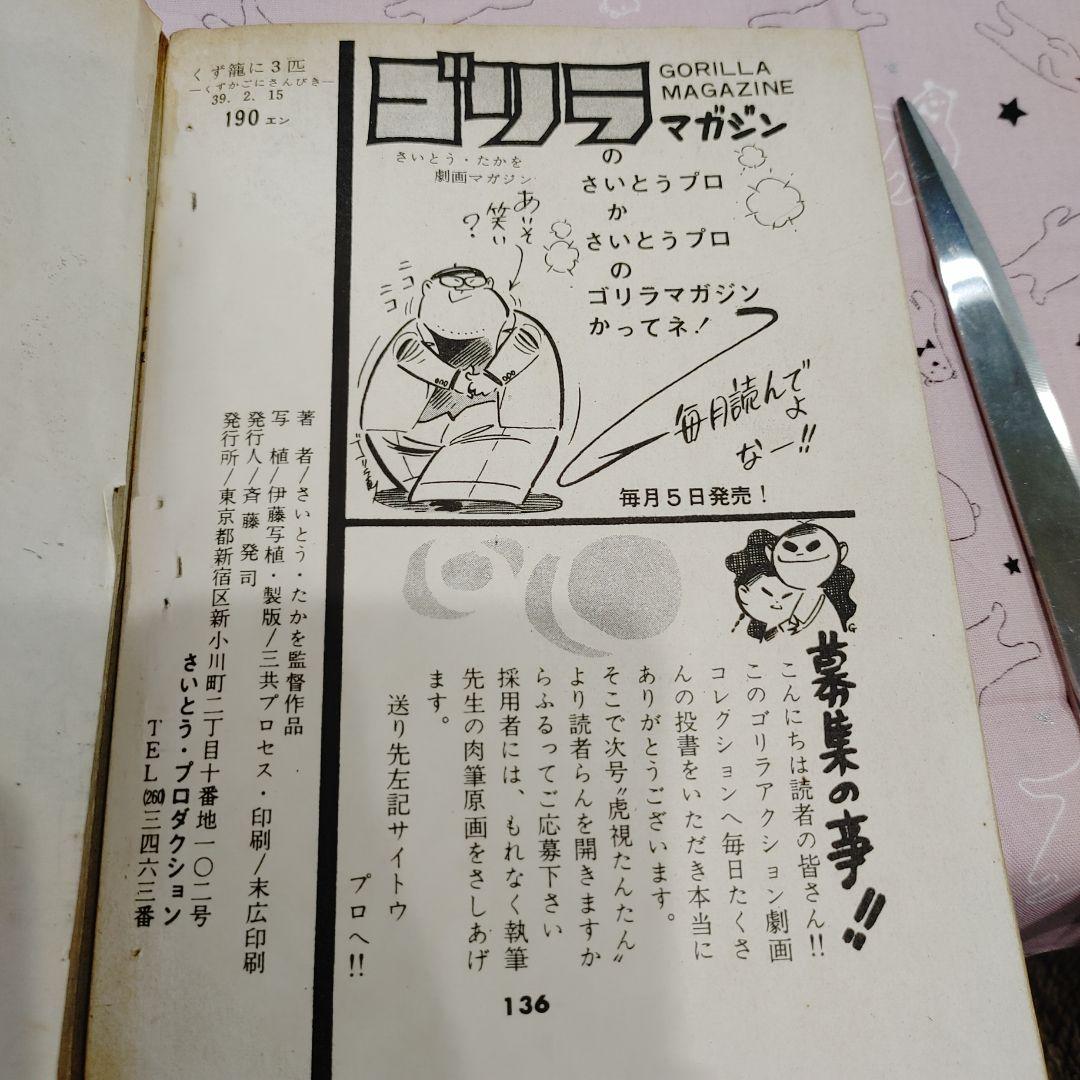 くず籠に3匹
―くずかごにさんびき―
39. 2. 15
190エン
ゴリラ
GORILLA
MAGAZINE
マガジン
さいとう・たかを
劇画マガジン
の
さいとうプロ
か
さいとうプロ
の
ゴリラマガジン
かってネ!
あいそ
笑い
?
ニコ
ニコ
毎月読んで
よ
なー!!
毎月5日発売!
募集の事!!
こんにちは読者の皆さん!!
このゴリラアクション劇画
コレクションへ毎日たくさ
んの投書をいただき本当に
ありがとうございます。
そこで次号"虎視たんたん"
より読者らんを開きますか
らふるってご応募下さい
採用者には、もれなく執筆
先生の肉筆原画をさしあげ
ます。
送り先左記サイトウ
プロへ!!
著者/さいとう・たかを監督作品
写植/伊藤写植・製版/三共プロセス・印刷/末広印刷
発行人/斉藤発司
発行所/東京都新宿区新小川町二丁目十番地一〇二号
さいとう・プロダクション
TEL(260)三四六三番
136